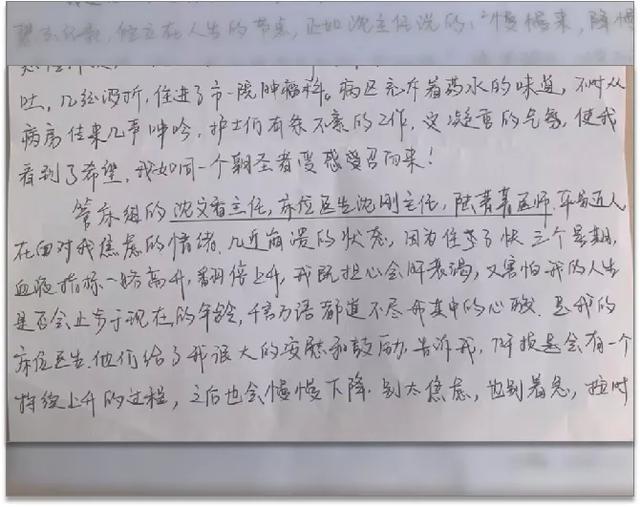 住立在人生的节点,正如沈主任说的:“慢慢来,降慢
吐,几经波折,住进了市一院肿瘤科。病区充斥着药水的味道,不时从
病房传来几声呻吟,护士们有条不紊的工作,安凝宁的气氛,使我
看到了希望,我如同一个朝圣者受感爱召而来!
管床组的沈文香主任,床位医生沈刚主任,陈菁菁医师,平易近人
在面对我焦虑的情绪、几近崩溃的状态,因为住了快三个星期,
血液指标一路高升,翻倍上升,我既担心会肝衰竭,又害怕我的人生
是否会止步于现在的年龄,千言万语都道不尽我其中的心酸。是我的
床位医生,他们给了我很大的安慰和鼓励,告诉我,肝损是会有一个
持续上升的过程,之后也会慢慢下降。别太焦虑,也别着急,按时